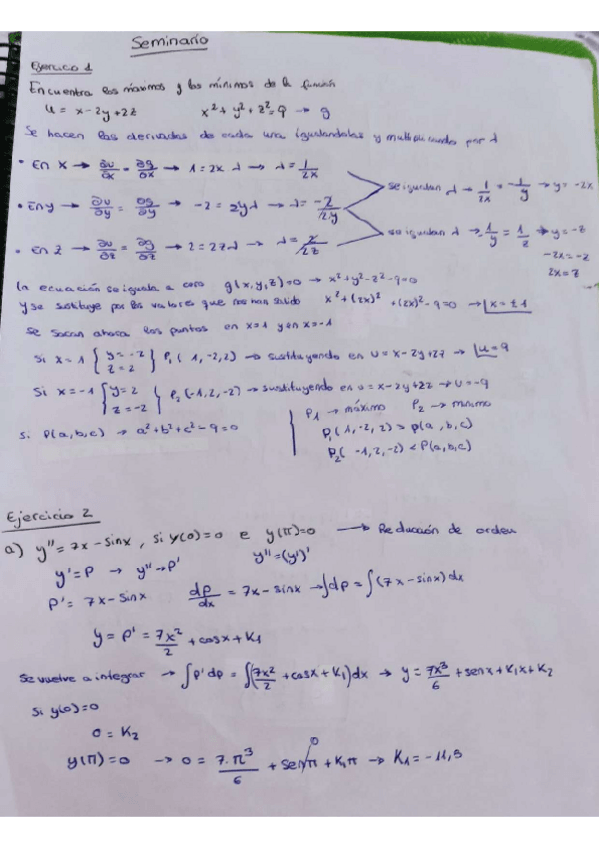 Seminario
Ejercicio 1
Encuentra los máximos y los mínimos de la función
u = x - 2y + 2z x² + y² + z² = 9 → g
Se hacen las derivadas de cada una igualandolas y multiplicando por λ
• En x → ∂u/∂x = ∂g/∂x → 1 = 2x λ → λ = 1/2x
se igualan λ → 1/2x = -1/y → y = -2x
• En y → ∂u/∂y = ∂g/∂y → -2 = 2yλ → λ = -2/2y
se igualan λ → -1/y = 1/z → y = -z
-2x = -z
2x = z
• En z → ∂u/∂z = ∂g/∂z → 2 = 2zλ → λ = 2/2z
La ecuación se iguala a cero g(x,y,z) = 0 → x² + y² - z² - 9 = 0
y se sustituye por los valores que nos han salido x² + (2x)² + (2x)² - 9 = 0 → x = ±1
Se sacan ahora los puntos en x = 1 y en x = -1
Si x = 1 { y = -2 z = 2 } P₁ (1, -2, 2) → sustituyendo en u = x - 2y + 2z → u = 9
Si x = -1 { y = 2 z = -2 } P₂ (-1, 2, -2) → sustituyendo en u = x - 2y + 2z → u = -9
P₁ → máximo P₂ → minimo
Si P(a,b,c) → a² + b² + c² - 9 = 0
P₁ (1, -2, 2) > P(a,b,c)
P₂ (-1, 2, -2) < P(a,b,c)
Ejercicio 2
a) y'' = 7x - sinx, si y(0) = 0 e y(π) = 0 → Reducción de orden
y' = P → y'' → P' y'' = (y')'
P' = 7x - sinx dp/dx = 7x - sinx → ∫dp = ∫(7x - sinx) dx
y = P' = 7x²/2 + cosx + K1
Se vuelve a integrar → ∫P' dp = ∫(7x²/2 + cosx + K1) dx → y = 7x³/6 + senx + K1x + K2
Si y(0) = 0
0 = K2
y(π) = 0 → 0 = 7·π³/6 + senπ + K1π → K1 = -11,5
0